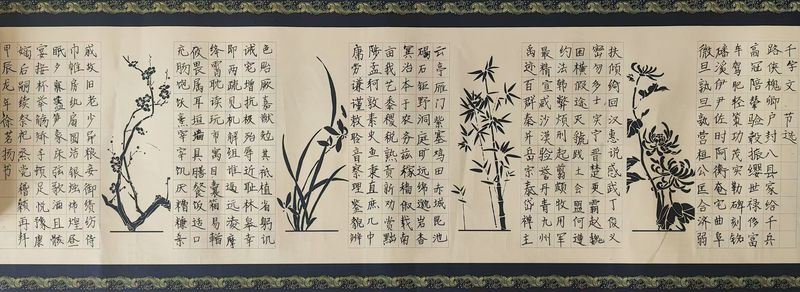 千字文 节选
路侠槐卿户封八县家给千兵
高冠陪辇驱毂振缨世禄侈富
车驾肥轻策功茂实勒碑刻铭
磻溪伊尹佐时阿衡奄宅曲阜
微旦孰旦孰营桓公匡合济弱
扶倾绮回汉惠说感武丁俊义
密勿多士寔宁晋楚更霸赵魏
困横假途灭虢践土会盟何遵
约法韩弊烦刑起翦颇牧用军
最精宣威沙漠驰誉丹青九州
禹迹百郡秦并岳宗泰岱禅主
云亭雁门紫塞鸡田赤城昆池
碣石钜野洞庭旷远绵邈岩杳
冥治本于农务兹稼穑俶载南
亩我艺黍稷税熟贡新劝赏黜
陟孟轲敦素史鱼秉直庶几中
庸劳谦谨敕聆音察理鉴貌辨
色贻厥嘉猷勉其祗植省躬讥
诫宠增抗极殆辱近耻林皋幸
即两疏见机解组谁逼遥凌摩
绛霄耽读玩市寓目囊箱易輶
攸畏属耳垣墙具膳餐饭适口
充肠饱饫烹宰宰饥厌糟糠亲
戚故旧老少异粮妾御绩纺侍
巾帷房纨扇圆洁银烛炜煌昼
眠夕寐象床弦歌酒
宴接杯举觞矫手顿足悦豫康
嫡后嗣续祭祀烝尝稽颡再拜
甲辰龙年徐茗扬书